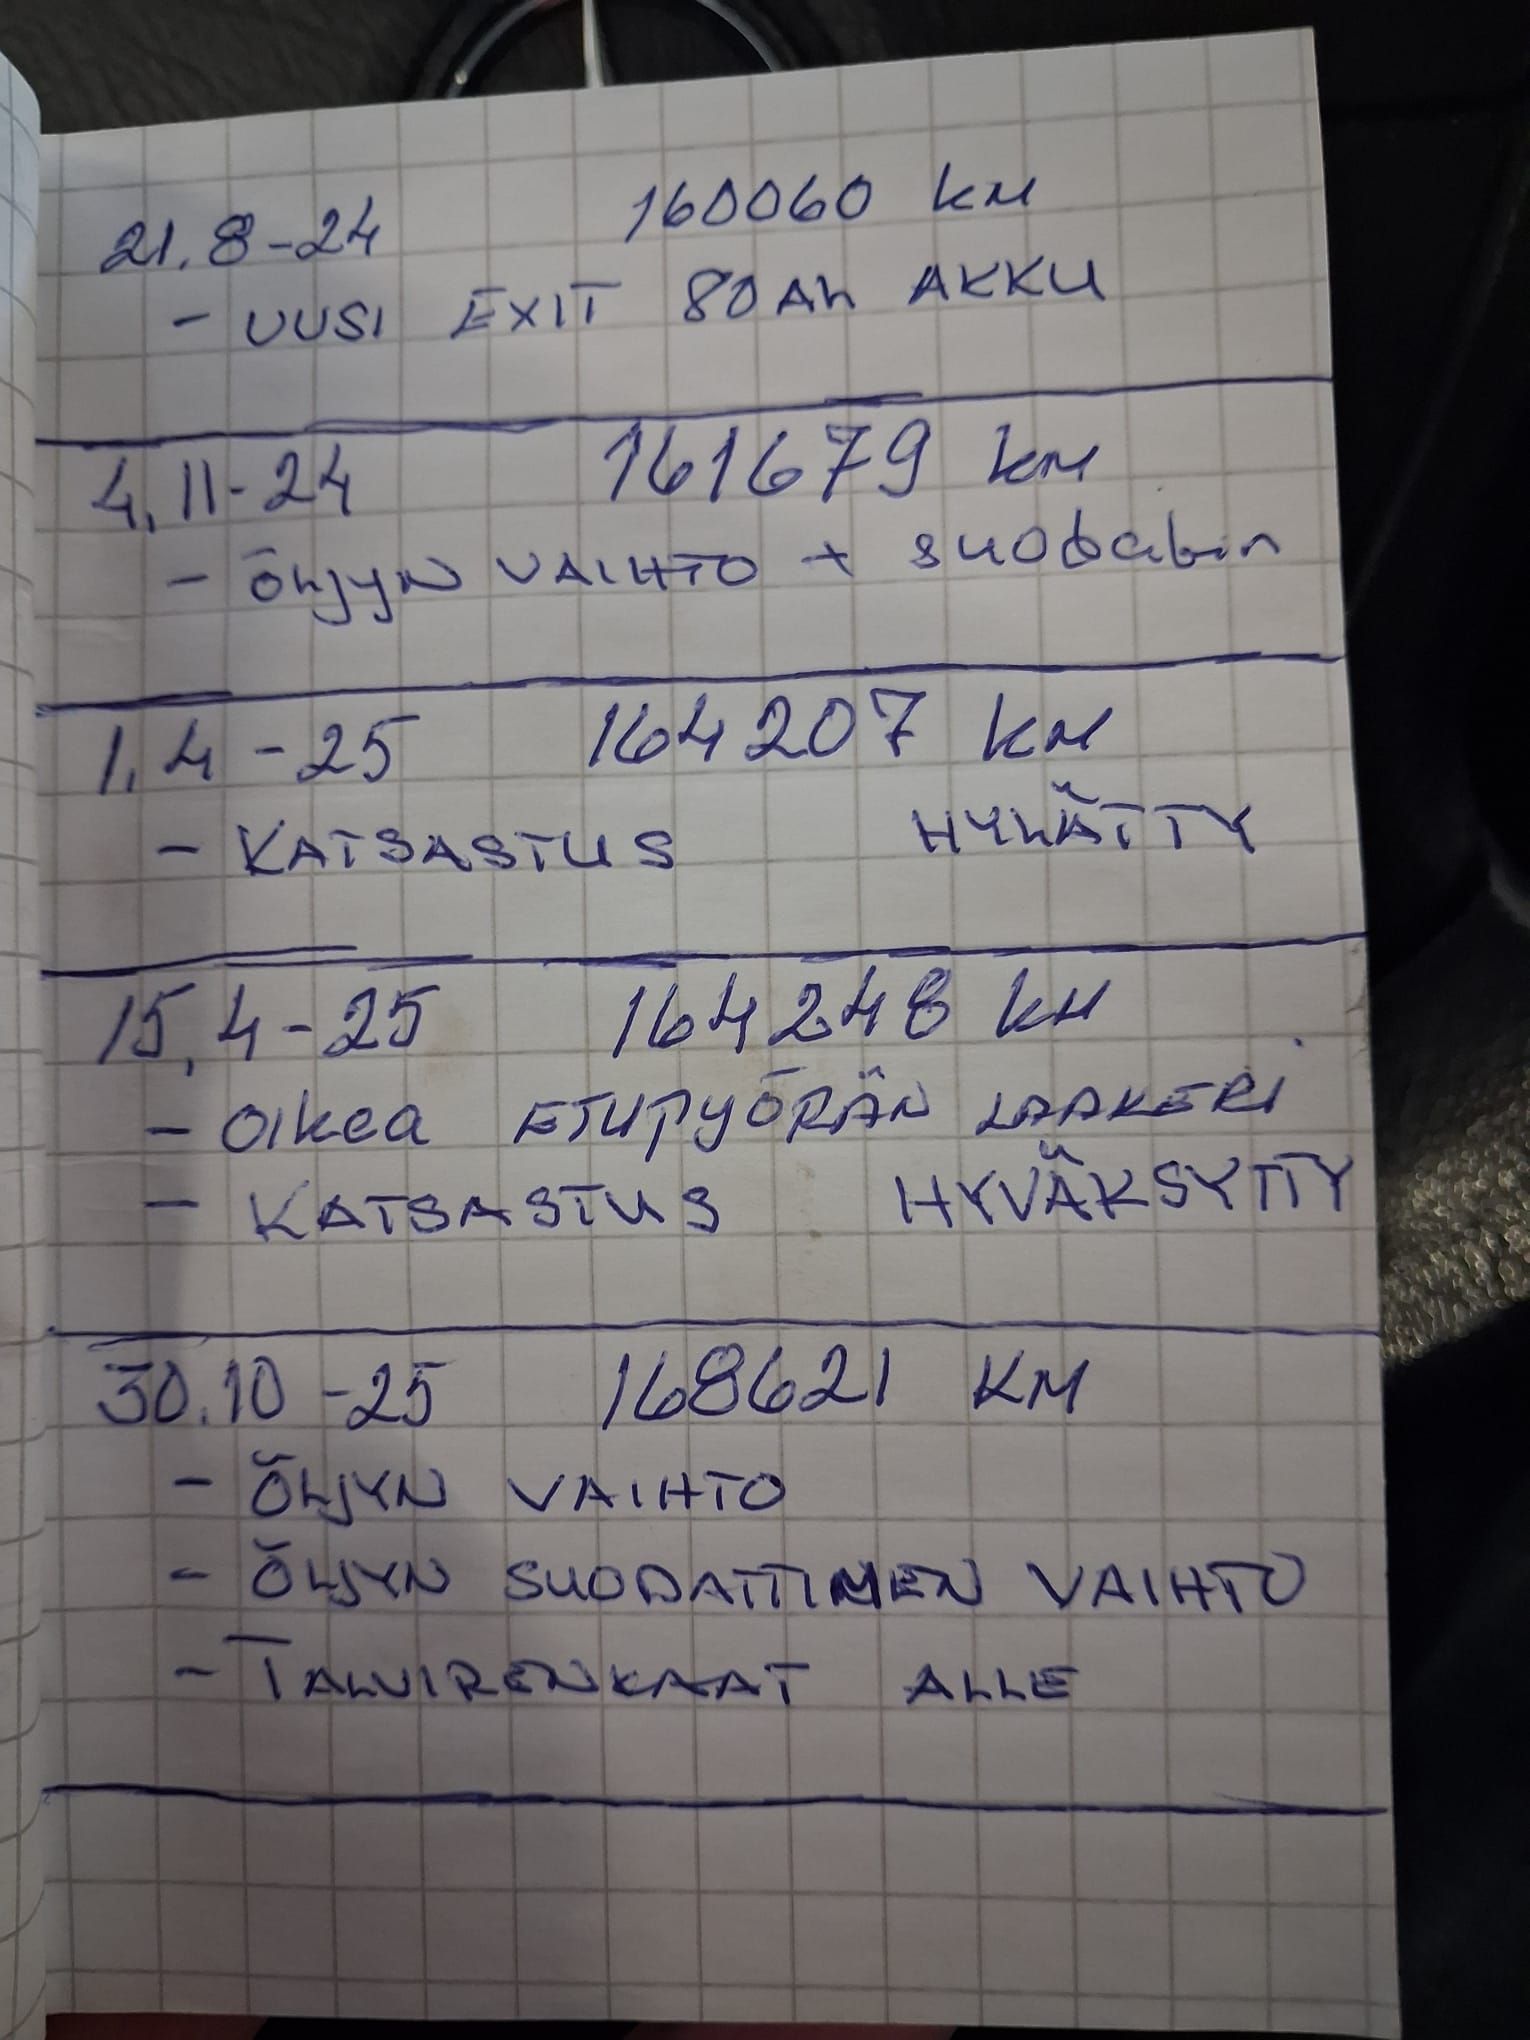 21.8-24 160060 km
- UUSI EXIT 80Ah AKKU
4.11-24 161679 km
- ÖLJYN VAIHTO + suodatin
1.4-25 164207 km
- KATSASTUS HYLÄTTY
15.4-25 164248 km
- oikea ETUPYÖRÄN LAAKERI
- KATSASTUS HYVÄKSYTTY
30.10-25 168621 KM
- ÖLJYN VAIHTO
- ÖLJYN SUODATTIMEN VAIHTO
- TALVIRENKAAT ALLE